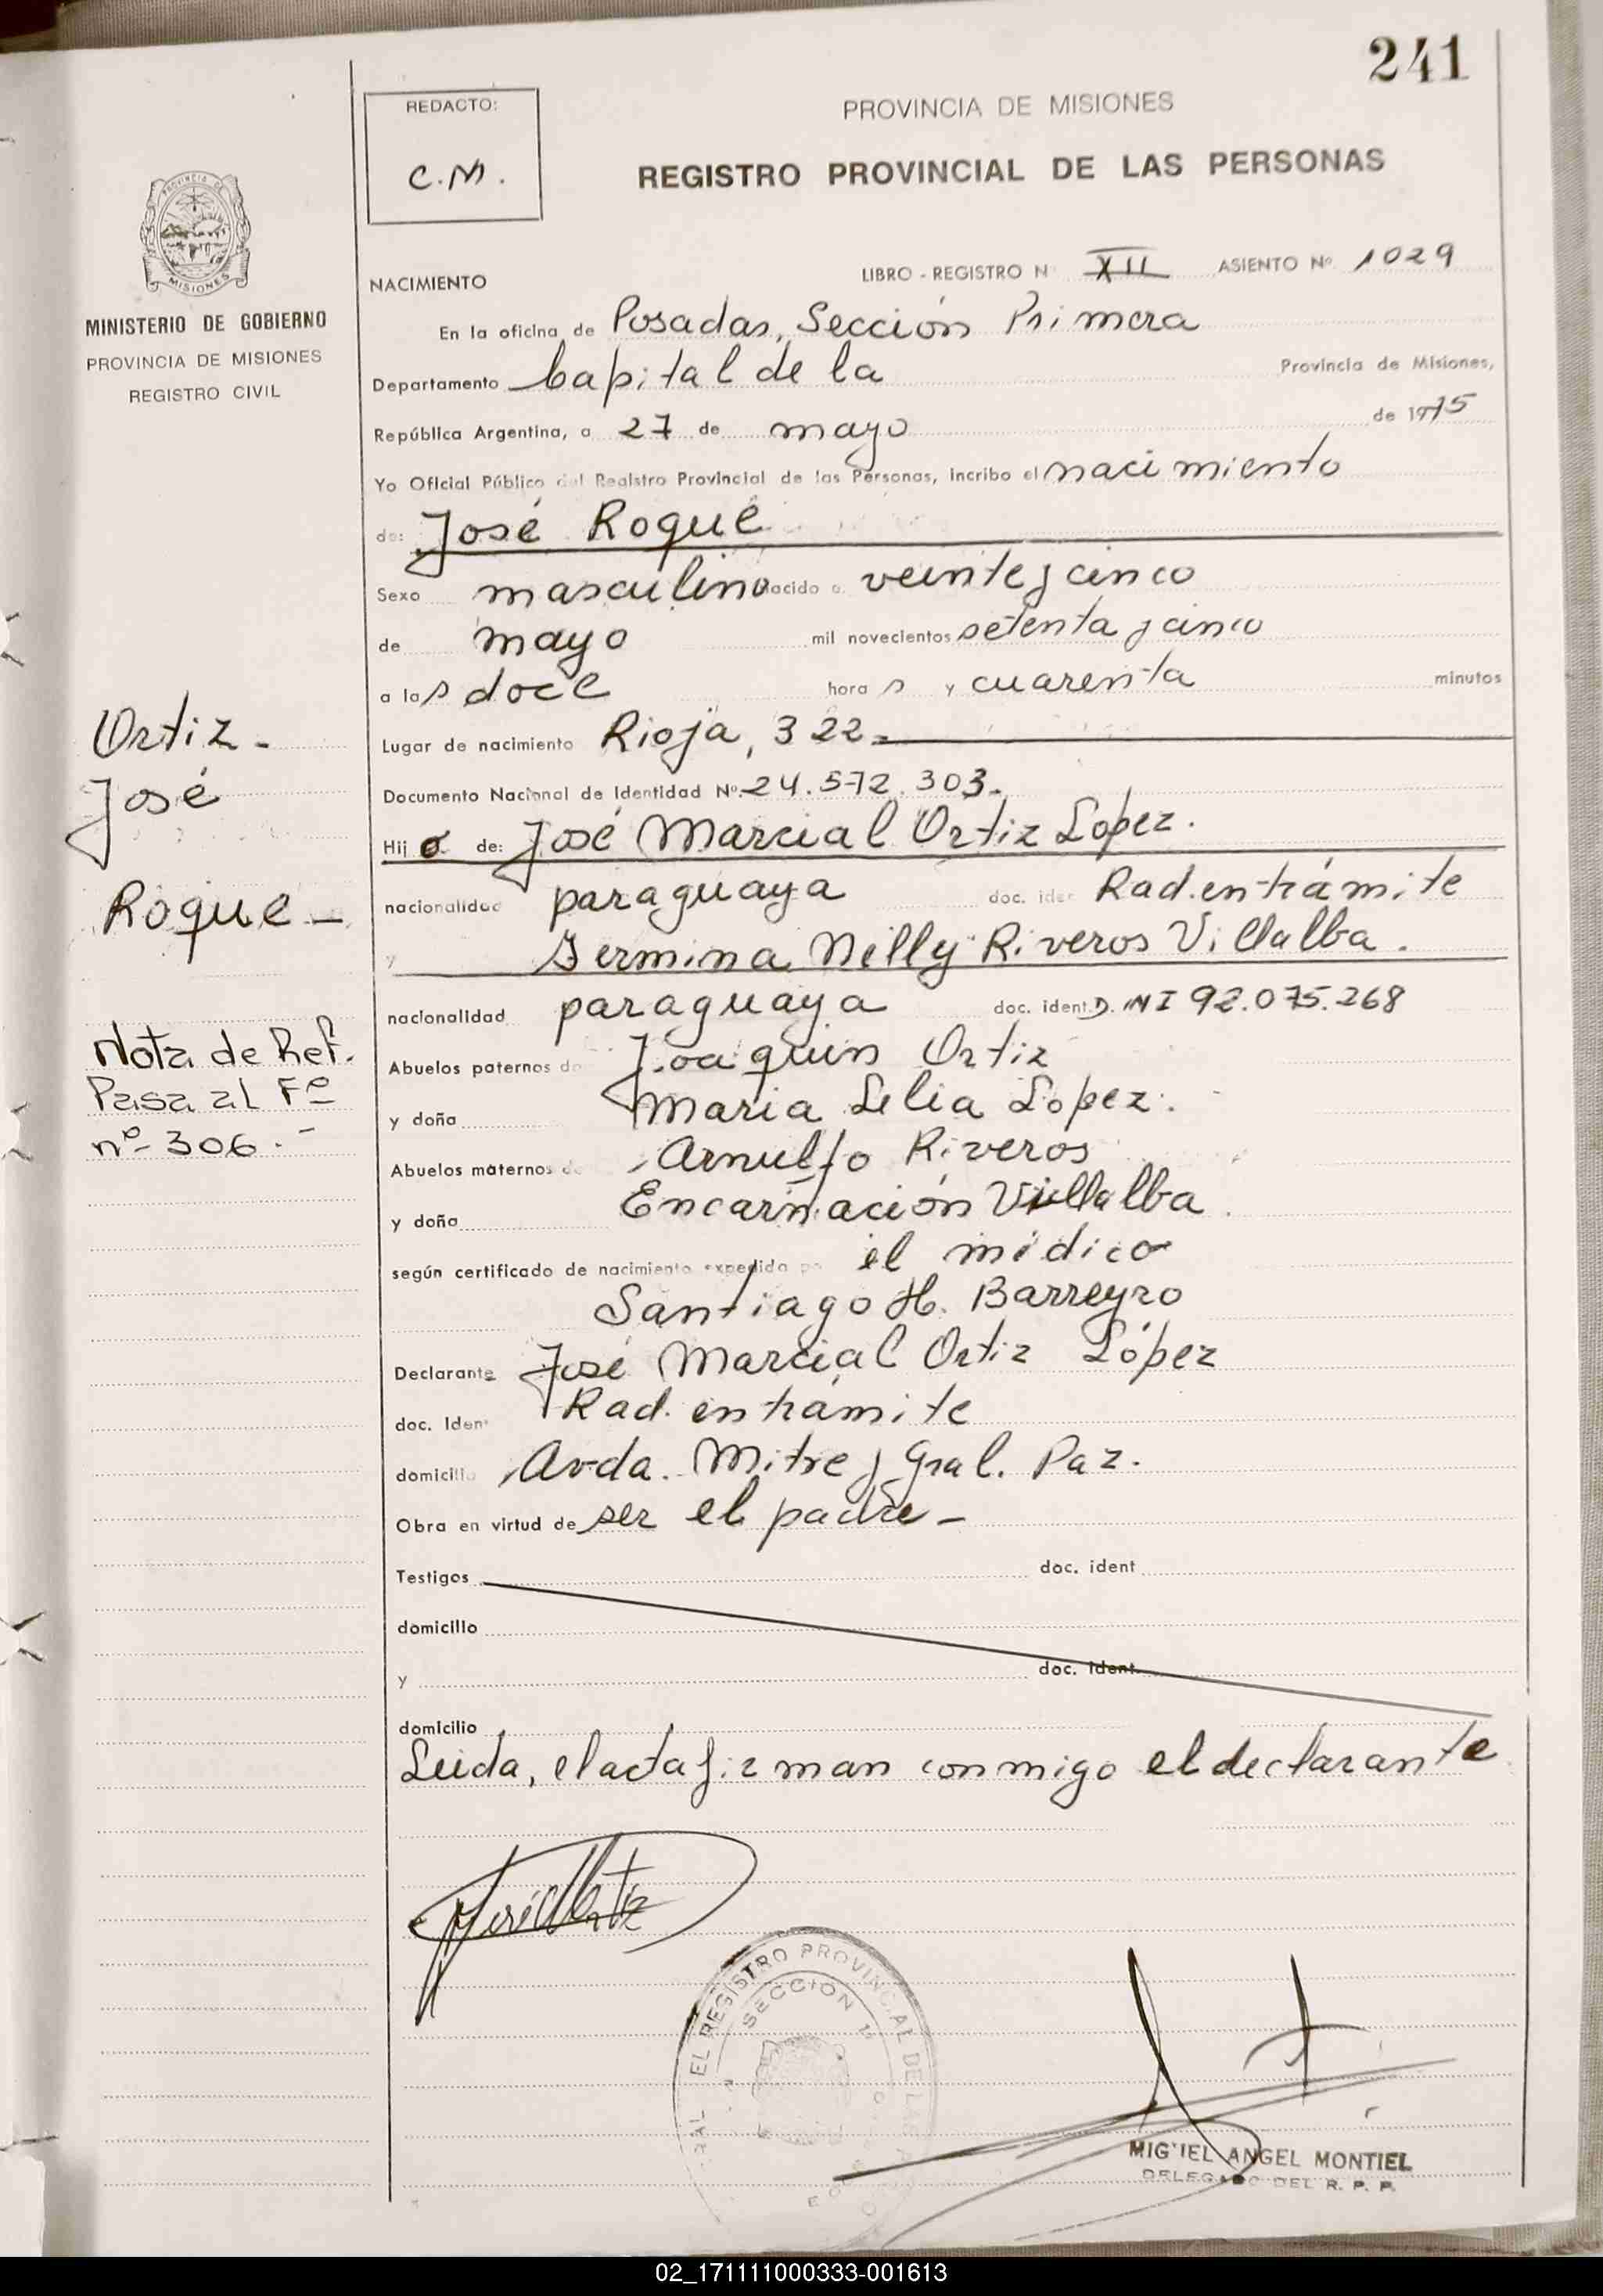 241
REDACTO:
C.M.
PROVINCIA DE MISIONES
REGISTRO PROVINCIAL DE LAS PERSONAS
MISIONES
MINISTERIO DE GOBIERNO
PROVINCIA DE MISIONES
REGISTRO CIVIL
LIBRO - REGISTRO N XII ASIENTO Nº 1029
NACIMIENTO
En la oficina de Posadas, Sección Primera
Departamento Capital de la Provincia de Misiones,
República Argentina, a 27 de mayo de 1975
Yo Oficial Público del Registro Provincial de las Personas, incribo el nacimiento
de: José Roqué
Sexo masculino nacido a veinte y cinco
de mayo mil novecientos setenta y cinco
a las doce horas y cuarenta minutos
Lugar de nacimiento Rioja, 322.
Documento Nacional de Identidad Nº. 24.572.303.
Hijo de: José Marcial Ortiz Lopez.
nacionalidad paraguaya doc. iden Rad. en trámite
y Germina Nelly Riveros Villalba.
nacionalidad paraguaya doc. ident D.N I 92.075.268
Abuelos paternos de Joaquin Ortiz
y doña Maria Lelia Lopez.
Abuelos maternos de Arnulfo Riveros
y doña Encarnación Villalba.
según certificado de nacimiento expedido po el médico
Santiago H. Barreyro
Declarante José Marcial Ortiz López
doc. Iden Rad. en trámite
domicilio Avda. Mitre y Gral. Paz.
Obra en virtud de ser el padre -
Testigos doc. ident
domicilio
y doc. ident
domicilio
Leida, el acta firman conmigo el declarante
Ortiz -
José
Roque -
Nota de Ref.
Pasa al Fº
nº 306.-
EL REGISTRO PROVINCIAL DE LAS
SECCION 1ª
MIGUEL ANGEL MONTIEL
DELEGADO DEL R. P. P.
02_171111000333-001613